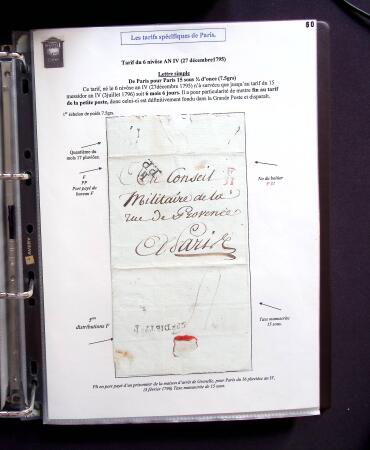 60
Les tarifs spécifiques de Paris.
Tarif du 6 nivôse AN IV (27 décembre1795)
Lettre simple
De Paris pour Paris 15 sous ¼ d'once (7.5grs)
Ce tarif, né le 6 nivôse an IV (27décembre 1795) n'a survécu que jusqu'au tarif du 15
messidor an IV (3juillet 1796) soit 6 mois 6 jours. Il a pour particularité de mettre fin au tarif
de la petite poste, donc celui-ci est définitivement fondu dans la Grande Poste et disparaît.
1er échelon de poids 7.5grs.
Quantième du
mois 17 pluviôse.
F
PP
Port payé du
bureau F
No du boitier
Au Conseil
Militaire de la
rue de Provence
A Paris
5ème
distributions F
Taxe manuscrite
15 sous.
Pli en port payé d'un prisonnier de la maison d'arrêt de Grenelle, pour Paris du 16 pluviôse an IV.
(5 février 1796) Taxe manuscrite de 15 sous.